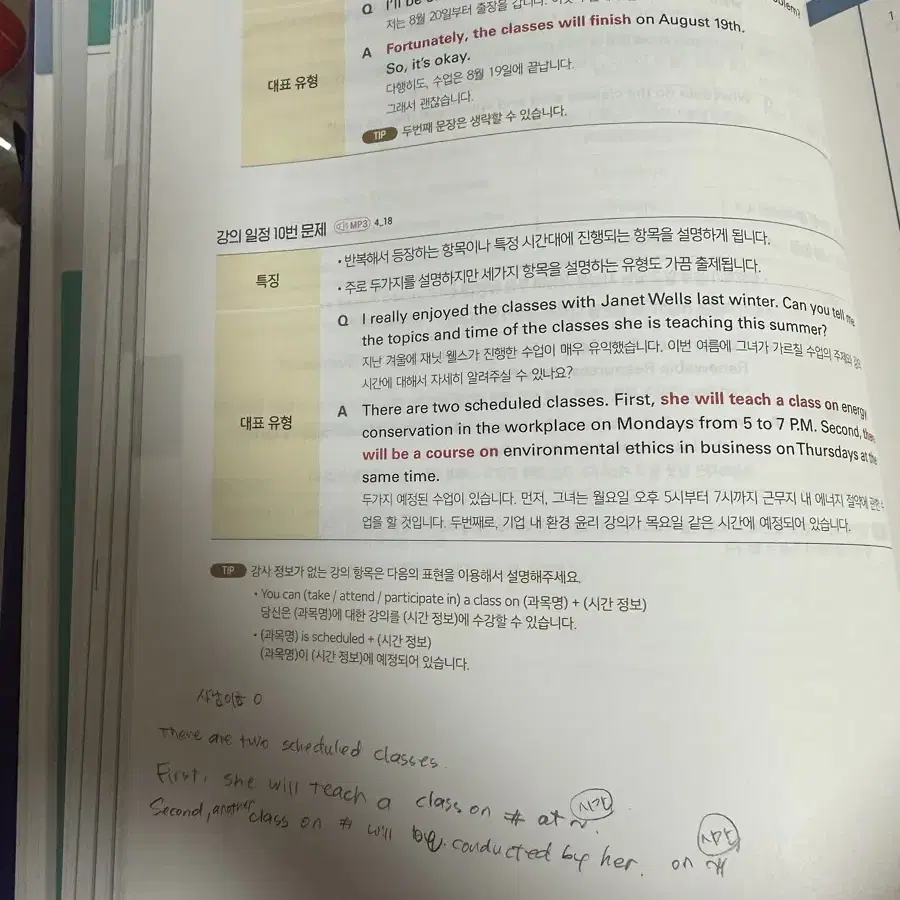 Q I'll be
저는 8월 20일부터 출장을 갑니다.
A Fortunately, the classes will finish on August 19th.
So, it's okay.
대표 유형
다행히도, 수업은 8월 19일에 끝납니다.
그래서 괜찮습니다.
TIP 두번째 문장은 생략할 수 있습니다.
강의 일정 10번 문제 MP3 4_18
특징
• 반복해서 등장하는 항목이나 특정 시간대에 진행되는 항목을 설명하게 됩니다.
• 주로 두가지를 설명하지만 세가지 항목을 설명하는 유형도 가끔 출제됩니다.
Q I really enjoyed the classes with Janet Wells last winter. Can you tell me
the topics and time of the classes she is teaching this summer?
지난 겨울에 재닛 웰스가 진행한 수업이 매우 유익했습니다. 이번 여름에 그녀가 가르칠 수업의 주제와
시간에 대해서 자세히 알려주실 수 있나요?
대표 유형
A There are two scheduled classes. First, she will teach a class on energy
conservation in the workplace on Mondays from 5 to 7 P.M. Second, there
will be a course on environmental ethics in business on Thursdays at the
same time.
두가지 예정된 수업이 있습니다. 먼저, 그녀는 월요일 오후 5시부터 7시까지 근무지 내 에너지 절약에 관한 수
업을 할 것입니다. 두번째로, 기업 내 환경 윤리 강의가 목요일 같은 시간에 예정되어 있습니다.
TIP 강사 정보가 없는 강의 항목은 다음의 표현을 이용해서 설명해주세요.
• You can (take / attend / participate in) a class on (과목명) + (시간 정보)
당신은 (과목명)에 대한 강의를 (시간 정보)에 수강할 수 있습니다.
• (과목명) is scheduled + (시간 정보)
(과목명)이 (시간 정보)에 예정되어 있습니다.
사람이름 O
There are two scheduled classes.
First, she will teach a class on # at ~ 시간.
Second, another class on # will be conducted by her. on 시간